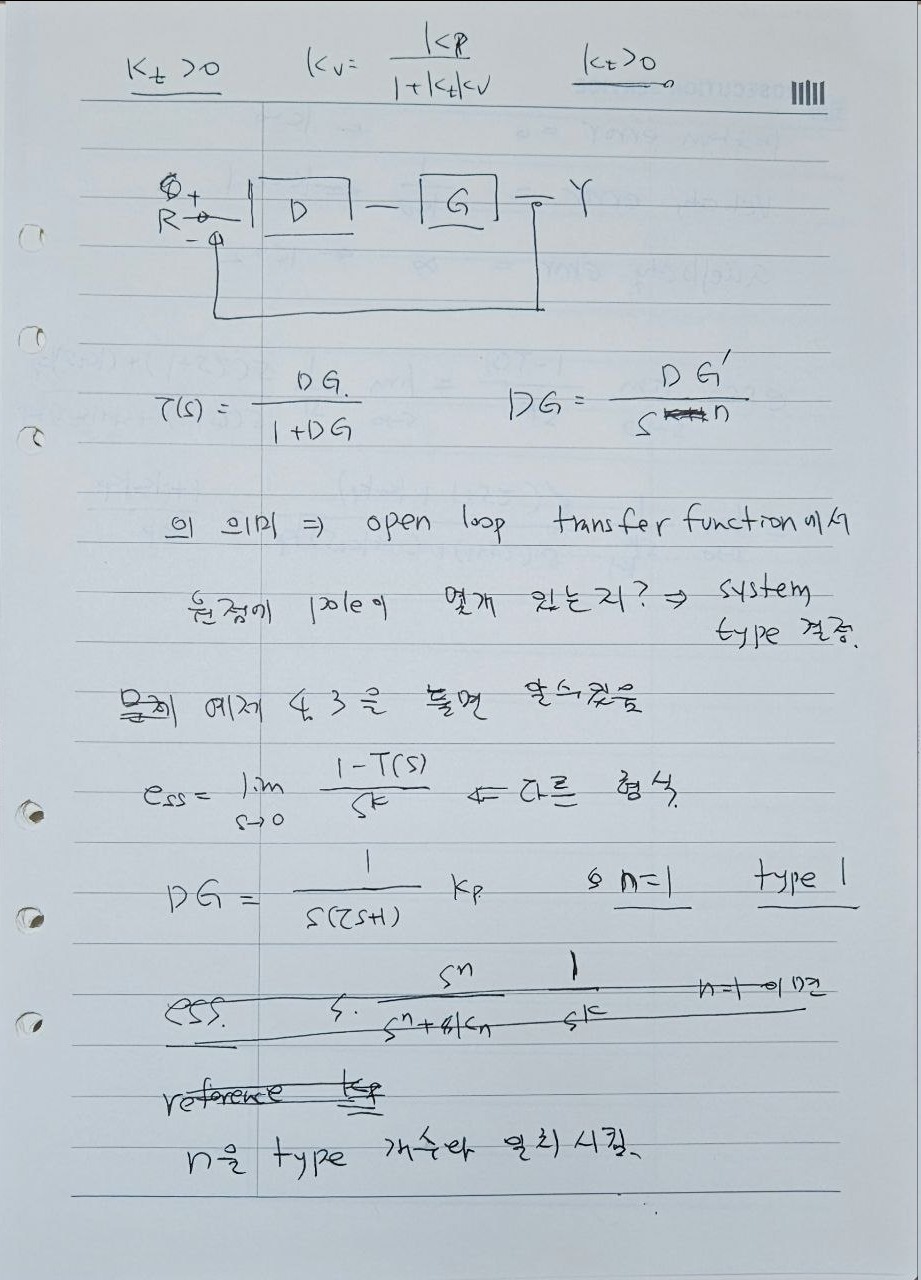 kt >0 kv = kp / 1+ktkv kt>0
R + - D G Y
T(s) = DG / 1+DG DG = DG' / s^n
의 의미 ⇒ open loop transfer function에서
원점에 pole이 몇개 있는지? ⇒ system
type 결정.
문제 예제 4.3을 풀면 알수있음
ess = lim s→0 1-T(s) / s^k ⇐ 다른 형식
DG = 1 / s(τs+1) kp. n=1 type 1
ess. s. s^n / s^n + kn 1 / s^k n=1 이면
reference kp
n을 type 개수와 일치시킴.